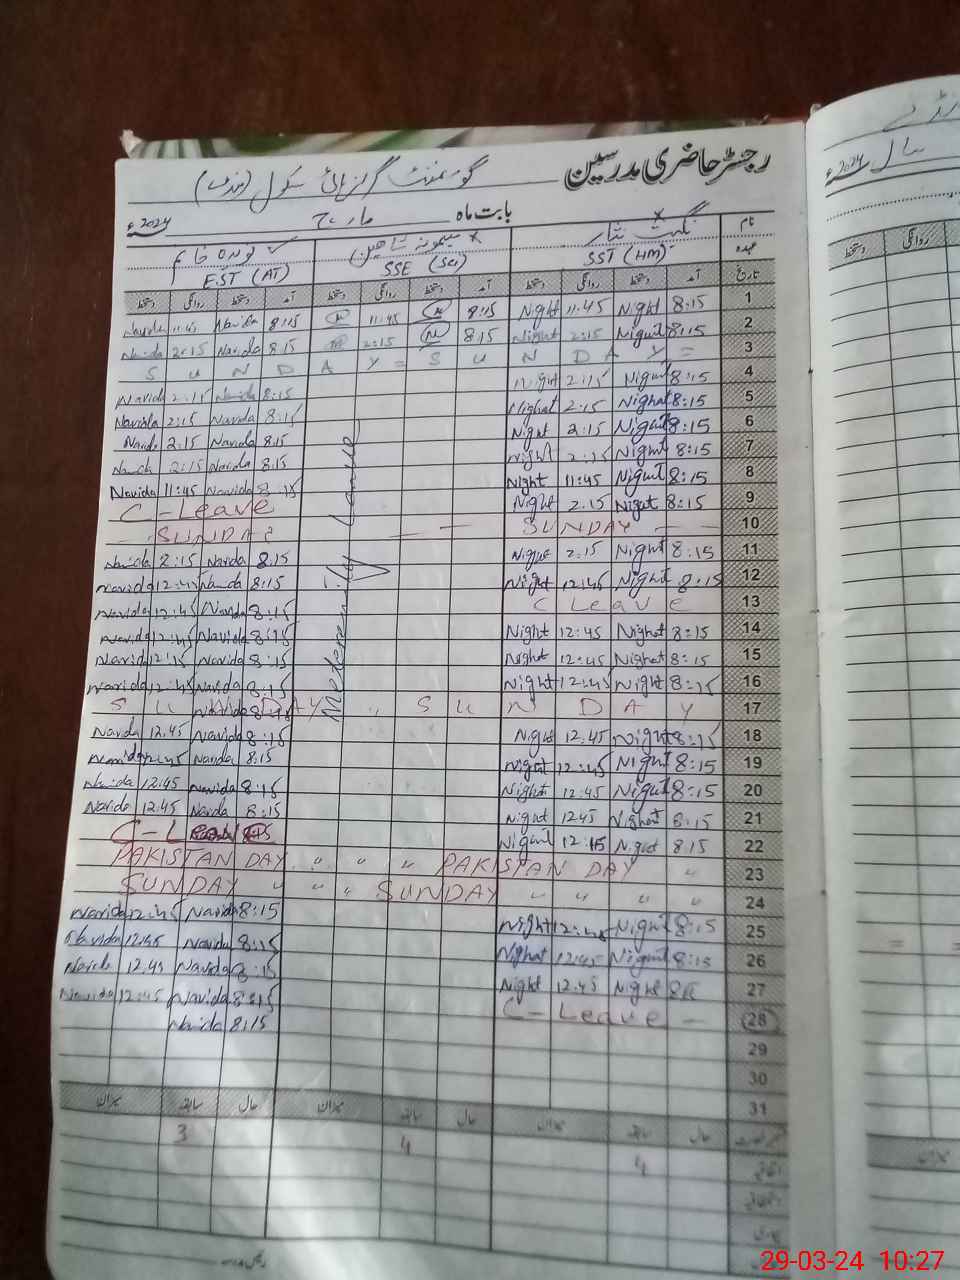 رجسٹر حاضری مدرسین گورنمنٹ گرلز ہائی سکول
سال 2024ء
بابت ماہ مارچ 2024ء
نام نگہت نثار میمونہ شاہین
عہدہ SST (HM) SSE (Sci) EST (AT)
تاریخ آمد دستخط روانگی دستخط آمد دستخط روانگی دستخط آمد دستخط روانگی دستخط
Navida 11:45 Navida 8:15 11:45 8:15 Night 11:45 Night 8:15 1
Navida 2:15 Navida 8:15 2:15 8:15 Night 2:15 Night 8:15 2
S U N D A Y = S U N D A Y = 3
Navida 2:15 Navida 8:15 Night 2:15 Night 8:15 4
Navida 2:15 Navida 8:15 Nighat 2:15 Nighat 8:15 5
Navida 2:15 Navida 8:15 Night 2:15 Night 8:15 6
Navida 2:15 Navida 8:15 Night 2:15 Night 8:15 7
Navida 11:45 Navida 8:15 Night 11:45 Night 8:15 8
C-Leave Night 2:15 Night 8:15 9
SUNDAY = SUNDAY 10
Navida 2:15 Navida 8:15 Night 2:15 Night 8:15 11
Navida 12:45 Navida 8:15 Night 12:45 Night 8:15 12
Navida 12:45 Navida 8:15 C Leave 13
Navida 12:45 Navida 8:15 Night 12:45 Nighat 8:15 14
Navida 12:45 Navida 8:15 Night 12:45 Nighat 8:15 15
Navida 12:45 Navida 8:15 Night 12:45 Night 8:15 16
S U N D A Y " S U N D A Y 17
Navida 12:45 Navida 8:15 Night 12:45 Night 8:15 18
Navida 12:45 Navida 8:15 Night 12:45 Night 8:15 19
Navida 12:45 Navida 8:15 Night 12:45 Night 8:15 20
Navida 12:45 Navida 8:15 Night 1245 Nighat 8:15 21
C-Leave Night 12:45 Night 8.15 22
PAKISTAN DAY " " " PAKISTAN DAY " 23
SUNDAY " " " SUNDAY " " " " 24
Navida 12:45 Navida 8:15 Night 12:45 Night 8:15 25
Navida 12:45 Navida 8:15 Nighat 12:45 Night 8:15 26
Navida 12:45 Navida 8:15 Night 12:45 Night 27
Navida 12:45 Navida 8:15 C-Leave - 28
Navida 8:15 29
30
31
Meternity Leave
حال سابقہ میزان حال سابقہ میزان حال سابقہ میزان
3 4
4
اتفاقیہ
29-03-24 10:27